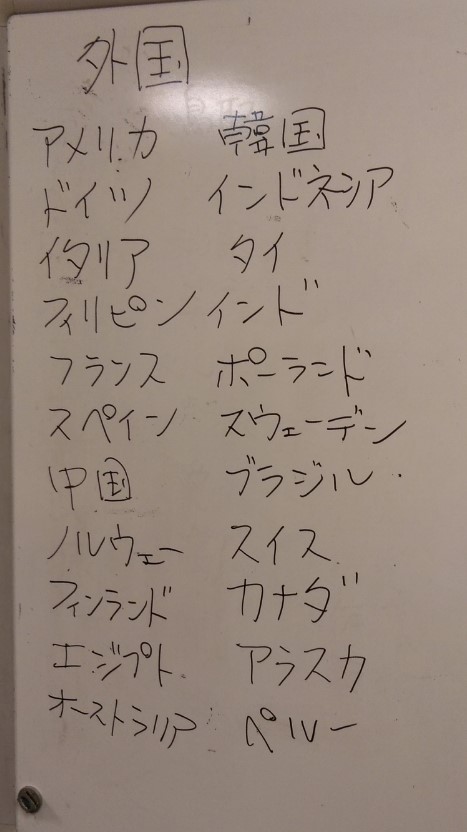 外国
アメリカ 韓国
ドイツ インドネシア
イタリア タイ
フィリピン インド
フランス ポーランド
スペイン スウェーデン
中国 ブラジル
ノルウェー スイス
フィンランド カナダ
エジプト アラスカ
オーストラリア ペルー